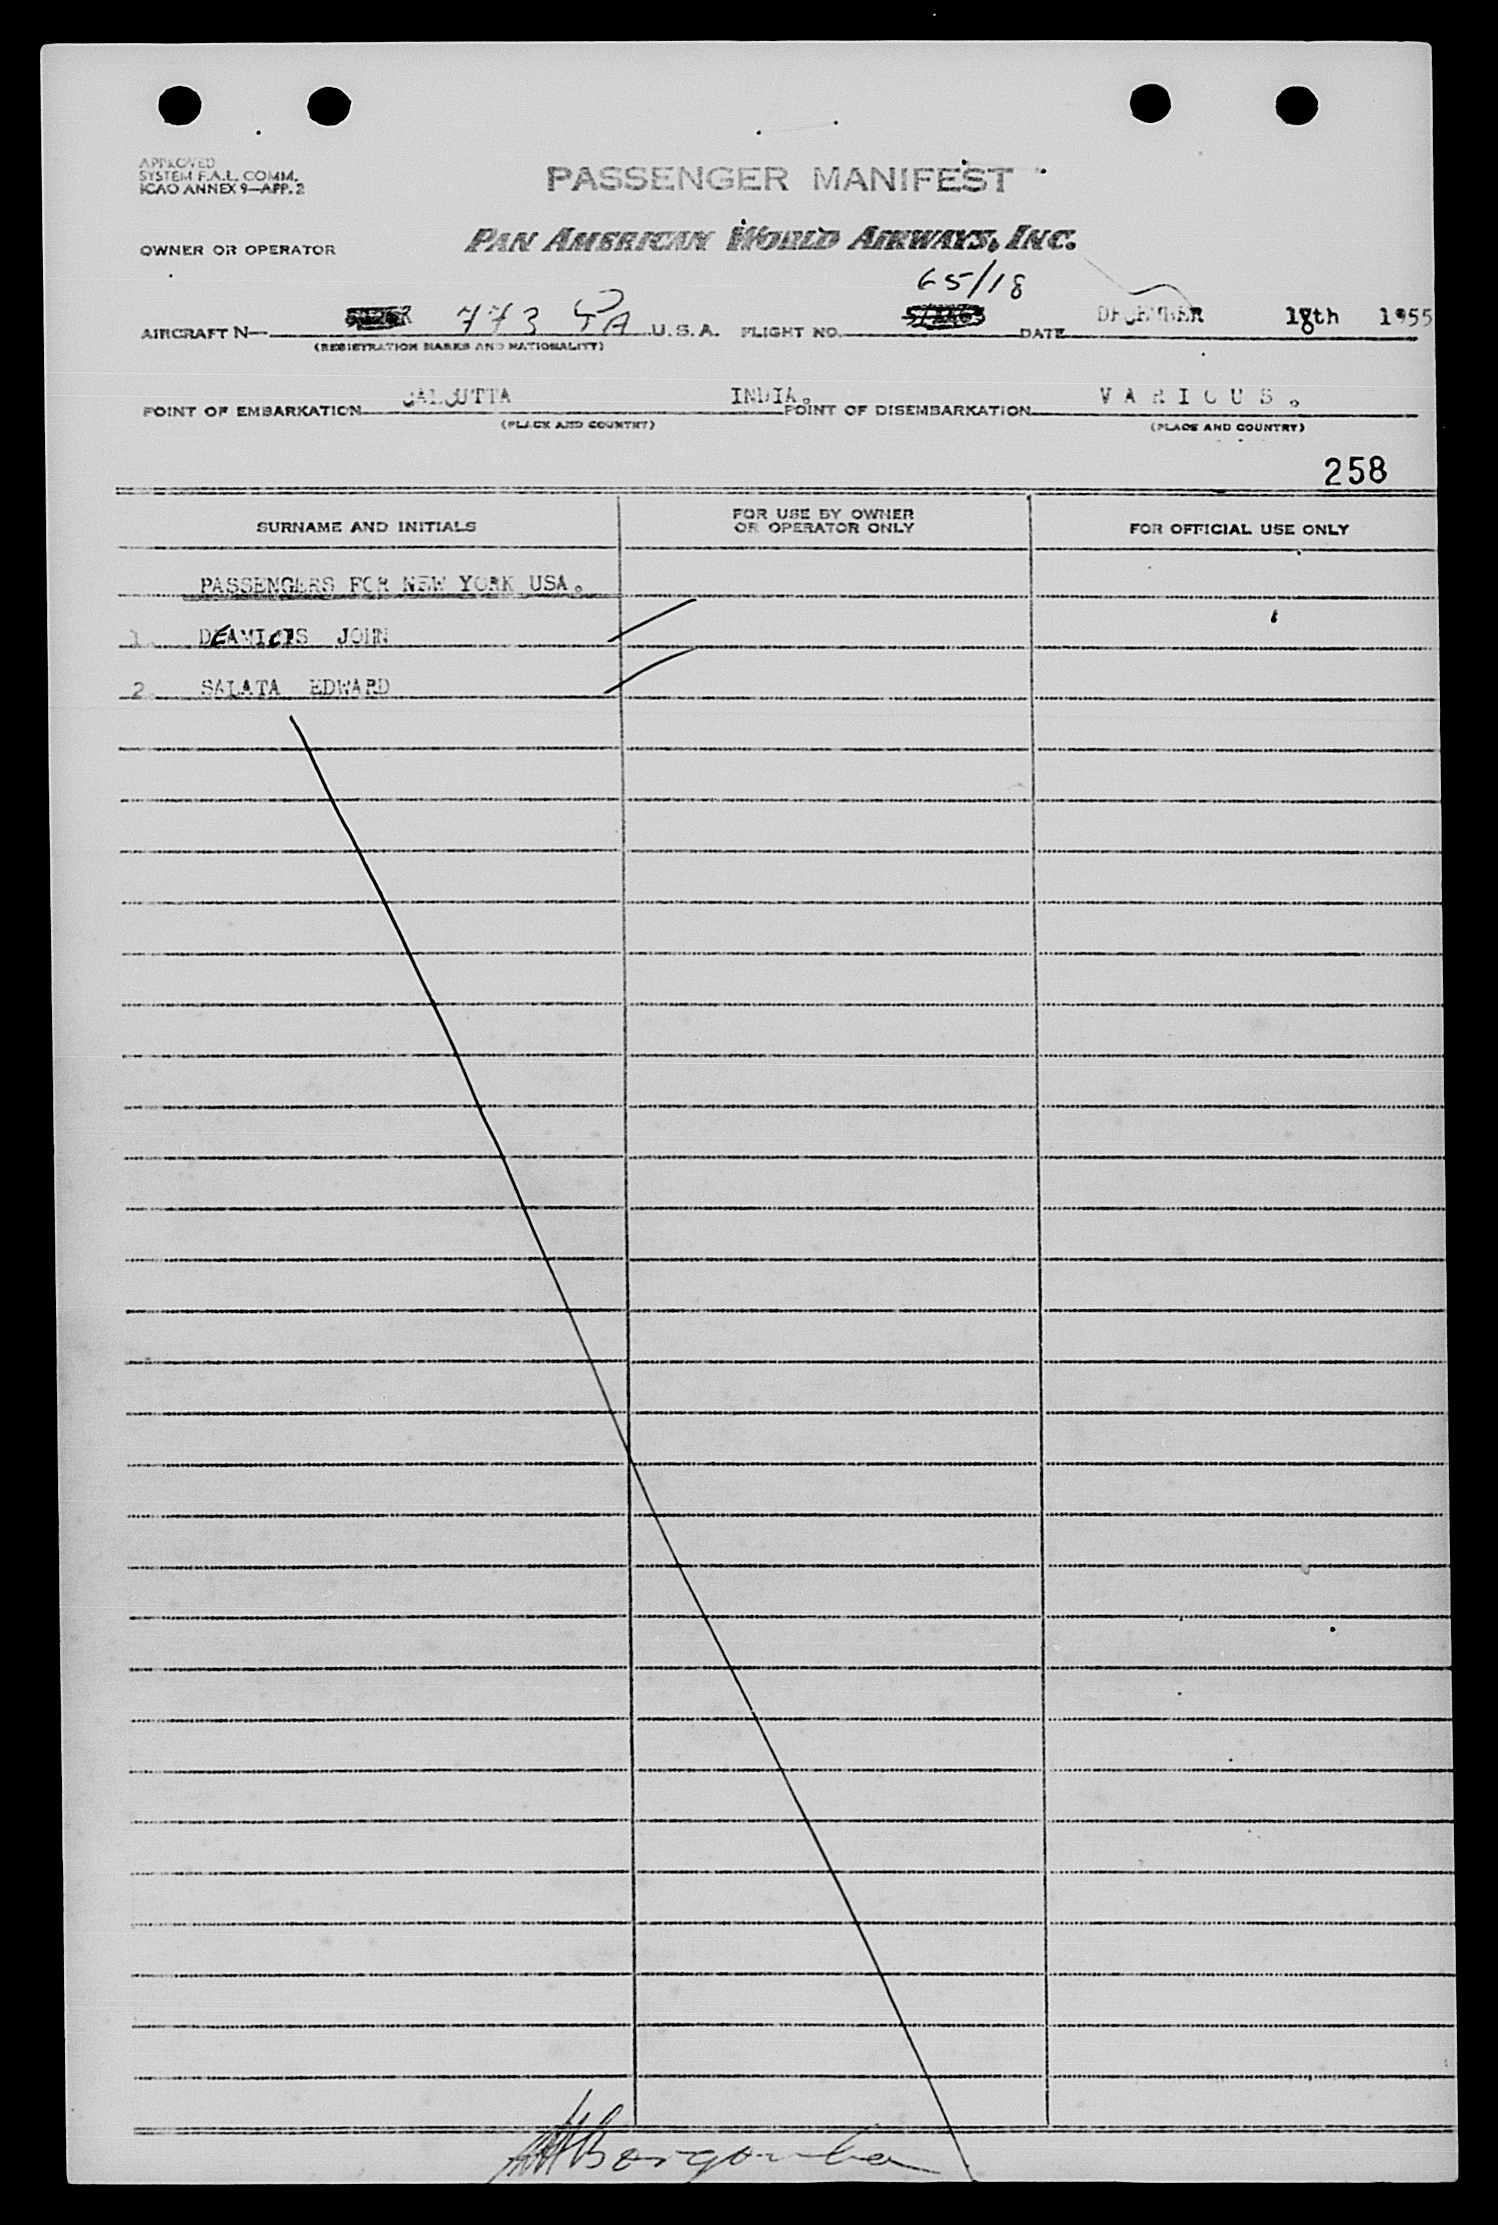 APPROVED
SYSTEM F.A.L. COMM.
ICAO ANNEX 9—APP. 2
PASSENGER MANIFEST
OWNER OR OPERATOR
PAN AMERICAN WORLD AIRWAYS, INC.
65/18
AIRCRAFT N— 773 PA U.S.A. FLIGHT NO. DATE DECEMBER 18th 1955
(REGISTRATION MARKS AND NATIONALITY)
POINT OF EMBARKATION CALCUTTA INDIA. POINT OF DISEMBARKATION V A R I O U S .
(PLACE AND COUNTRY) (PLACE AND COUNTRY)
258
SURNAME AND INITIALS
FOR USE BY OWNER
OR OPERATOR ONLY
FOR OFFICIAL USE ONLY
PASSENGERS FOR NEW YORK USA.
1. DEAMICIS JOHN
2. SALATA EDWARD